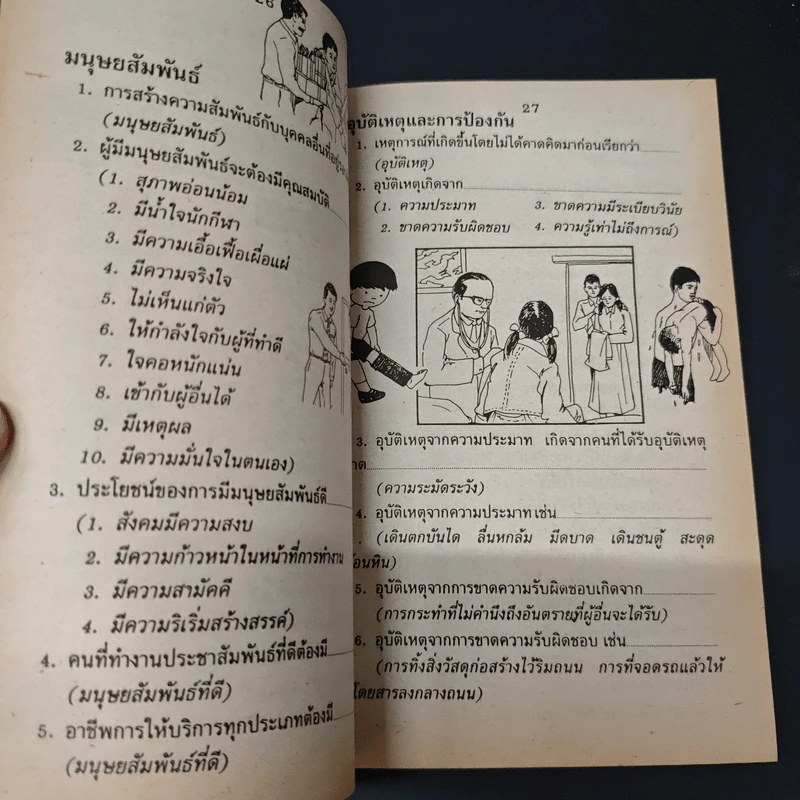 26
มนุษยสัมพันธ์
1. การสร้างความสัมพันธ์กับบุคคลอื่นที่อยู่
(มนุษยสัมพันธ์)
2. ผู้มีมนุษยสัมพันธ์จะต้องมีคุณสมบัติ
(1. สุภาพอ่อนน้อม
2. มีน้ำใจนักกีฬา
3. มีความเอื้อเฟื้อเผื่อแผ่
4. มีความจริงใจ
5. ไม่เห็นแก่ตัว
6. ให้กำลังใจกับผู้ที่ทำดี
7. ใจคอหนักแน่น
8. เข้ากับผู้อื่นได้
9. มีเหตุผล
10. มีความมั่นใจในตนเอง)
3. ประโยชน์ของการมีมนุษยสัมพันธ์ดี
(1. สังคมมีความสงบ
2. มีความก้าวหน้าในหน้าที่การทำงาน
3. มีความสามัคคี
4. มีความริเริ่มสร้างสรรค์)
4. คนที่ทำงานประชาสัมพันธ์ที่ดีต้องมี
(มนุษยสัมพันธ์ที่ดี)
5. อาชีพการให้บริการทุกประเภทต้องมี
(มนุษยสัมพันธ์ที่ดี)
27
อุบัติเหตุและการป้องกัน
1. เหตุการณ์ที่เกิดขึ้นโดยไม่ได้คาดคิดมาก่อนเรียกว่า
(อุบัติเหตุ)
2. อุบัติเหตุเกิดจาก
(1. ความประมาท 3. ขาดความมีระเบียบวินัย
2. ขาดความรับผิดชอบ 4. ความรู้เท่าไม่ถึงการณ์)
3. อุบัติเหตุจากความประมาท เกิดจากคนที่ได้รับอุบัติเหตุ
(ความระมัดระวัง)
4. อุบัติเหตุจากความประมาท เช่น
(เดินตกบันได ลื่นหกล้ม มีดบาด เดินชนตู้ สะดุด
ก้อนหิน)
5. อุบัติเหตุจากการขาดความรับผิดชอบเกิดจาก
(การกระทำที่ไม่คำนึงถึงอันตรายที่ผู้อื่นจะได้รับ)
6. อุบัติเหตุจากการขาดความรับผิดชอบ เช่น
(การทิ้งสิ่งวัสดุก่อสร้างไว้ริมถนน การที่จอดรถแล้วให้
โดยสารลงกลางถนน)